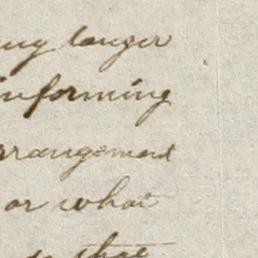 ing longer
informing
arrangement
or what
that